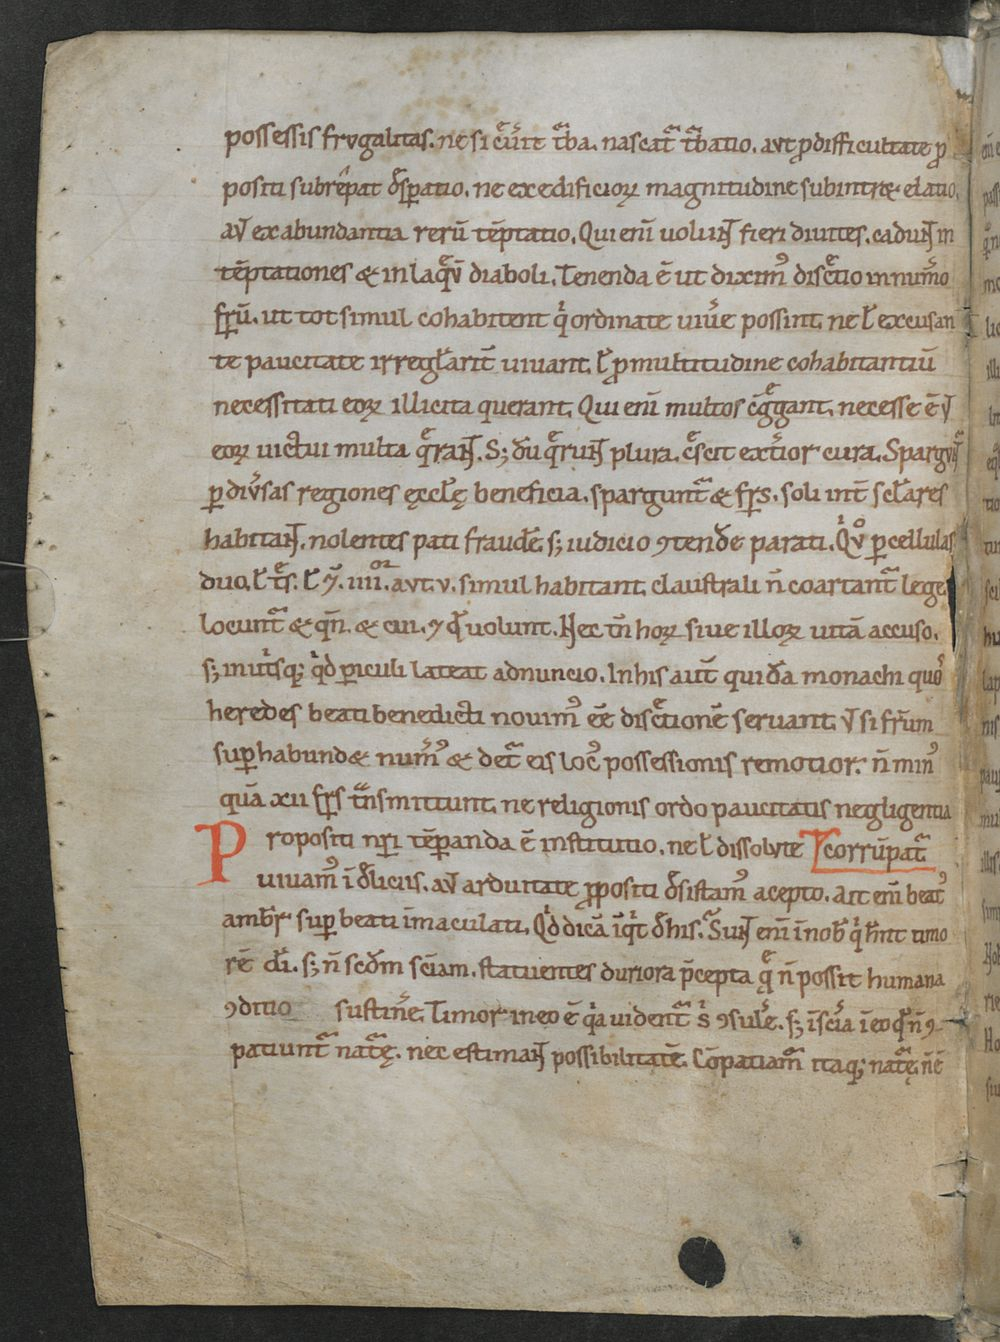 possessis frvgalitas. ne si c̄ͤu̓it tᷓba. nascat᷑ tᷓbatio. avt ꝓ difficultate ꝓ
positi subrēpat dꝭꝑatio. ne ex edificioꝝ magnitudine subintret elatio.
aV̄ ex abundantia rerū tēptatio. Qui eni̅ uoluNT fieri diuites. caduNT in
tēptationes & in laqͤū diaboli. Tenenda ē ut diximꝰ disc̄ͤtio in num̓o
fr̄um. ut tot simul cohabitent qⁱ ordinate uiu̓e possint. ne ł excusan
te paucitate irregłarit̄ uiuant. ł ꝓ multitudine cohabitantiū
necessitati eoꝝ illicita querant. Qui eni̅ multos c̄gͤgant. necesse ē V̄
eoꝝ uictui multa qͤraNT. S; dū qͤruNT plura. cͤscit ext̓ior cura. SparguNTᷓ
ꝑ diu̓sas regiones ęccl̄ę beneficia. sparguntᷓ & fr̄s. soli int̄ sc̄lares
habitaNT. nolentes pati fraudē. s; iudicio ꝯtend̄e parati. Qⁱ v̊ ꝑ cellulas
duo. ł tͤs. ł ⁊. iiii.ᵒʳ avt. v. simul habitant. claustrali n̄ coartantᷓ lege.
locuntᷓ & qn̄. & cui. ⁊ qᷓ uolunt. Nec tn̄ hoꝝ siue illoꝝ uitā accuso.
s; in utⁱsq; qⁱd ꝑiculi lateat adnuncio. In his aut̄ quidā monachi quo̓
heredes beati benedicti nouimꝰ ee̅ disc̄ͤtionē seruant. V̄ si fr̄um
suꝑhabundet num̓ꝰ & det᷑ eis locꝰ possessionis remotior. n̄ minꝰ
quā xii fr̄s tᷓnsmittunt. ne religionis ordo paucitatis negligentia
Propositi nr̄i tēꝑanda ē institutio. ne ł dissolvte corrūpatᷓ
uiuamꝰ ī dl̄iciis. aV̄ arduitate ꝓpositi dꝭistamꝰ acepto. Ait eni̅ beatꝰ
ambr̄ suꝑ beati īmaculati. Qⁱd dicā īqⁱt de his.ᷓ SuNT eni̅ ī nob̄ qⁱ hn̄t timo
rē di̅. s; n̄ scd̄m sc̄iam. statuentes duriora p̄cepta qͤ n̄ possit humana
ꝯditio sustin̓e. Timor in eo ē qⁱa uidentᷓ sⁱ ꝯsul̓e. s; īsc̓ia ī eo qᷓ n̄ ꝯ
patiuntᷓ natᷓę. nec estimaNT possibilitatē. Cōpatiamᷓ itaq; natᷓę. n̄ ē